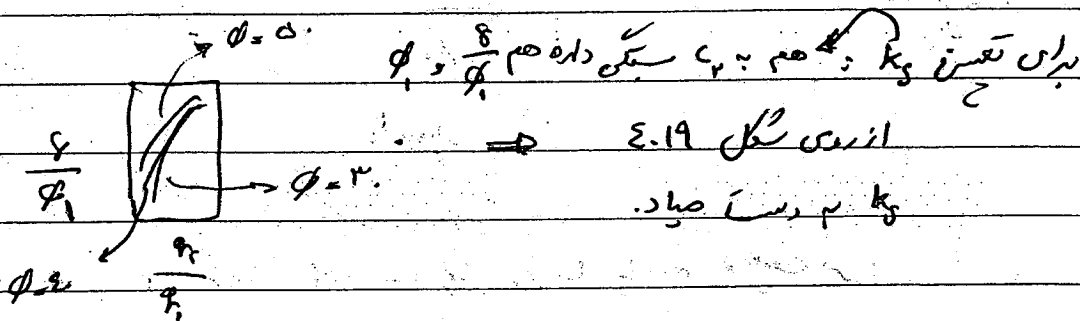 برای تعیین kₛ ؛ هم به c₂ بستگی داره هم δ/φ₁ و φ₁
از روی شکل ٤.١٩
kₛ به دست میاد.
⇒
φ = ۵۰
δ/φ₁
φ = ۳۰
φ = ٤۰
q₂/q₁